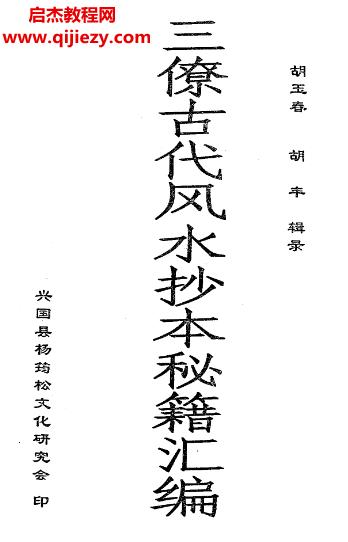 启杰教程网
www.qijiezy.com
胡玉春 胡丰 辑录
三僚古代风水抄本秘籍汇编
兴国县杨筠松文化研究会 印